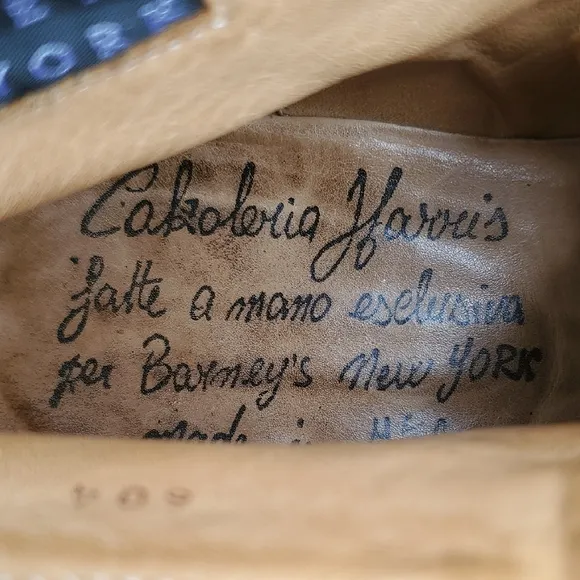 YORK
Calzoleria Harris
fatte a mano esclusiva
per Barney's New YORK
made in